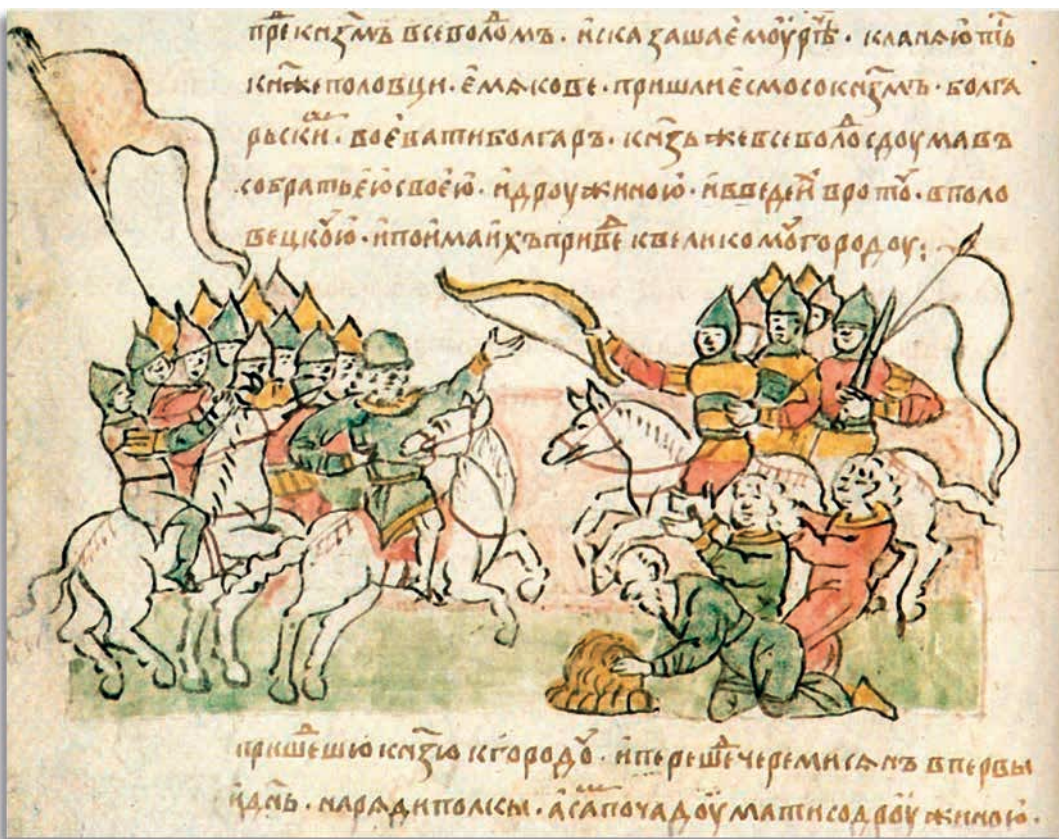 пре кнѧзмъ всеволодмъ . и сказаша ємоу рѣшѣ . кланяютьь
кнѧже половци . ємякове . пришли єсмо со кнѧзмъ . болга
рьским . воєвати болгаръ . кнѧзь же всеволодъ сдоумавъ
со братьєю своєю . и дроужиною . и введе и в ротоу . в поло
вецкоую . и поима ихъ приде к великомоу городоу :
пришедшю кнѧзю к городоу . и перешедъ черемисянъ в первы
и днь . наряди полкы . а самъ поча доумати со дроужиною .